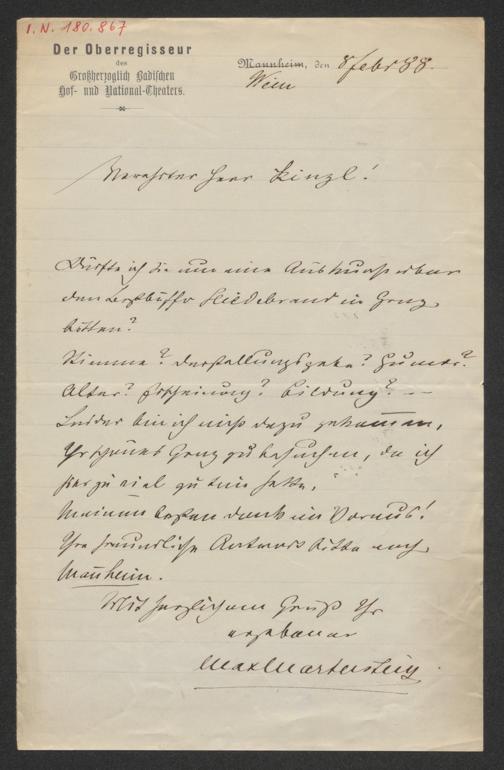 I. N. 180.867
Der Oberregisseur
des
Großherzoglich Badischen
Hof- und National-Theaters.
Mannheim, den 8 Febr 88.
Wien
Verehrter Herr Kinzl!
Dürfte ich Sie um eine Auskunft über
den Baßbuffo Hildebrand in Graz
bitten?
Stimme? Darstellungsgabe? Humor?
Alter? Erscheinung? Bildung? —
Leider bin ich nicht dazu gekommen,
Ihr schönes Graz zu besuchen, da ich
hier zu viel zu tun hatte.
Meinen besten Dank im Voraus!
Ihre freundliche Antwort bitte nach
Mannheim.
Mit herzlichem Gruß Ihr
ergebener
Max Martersteig